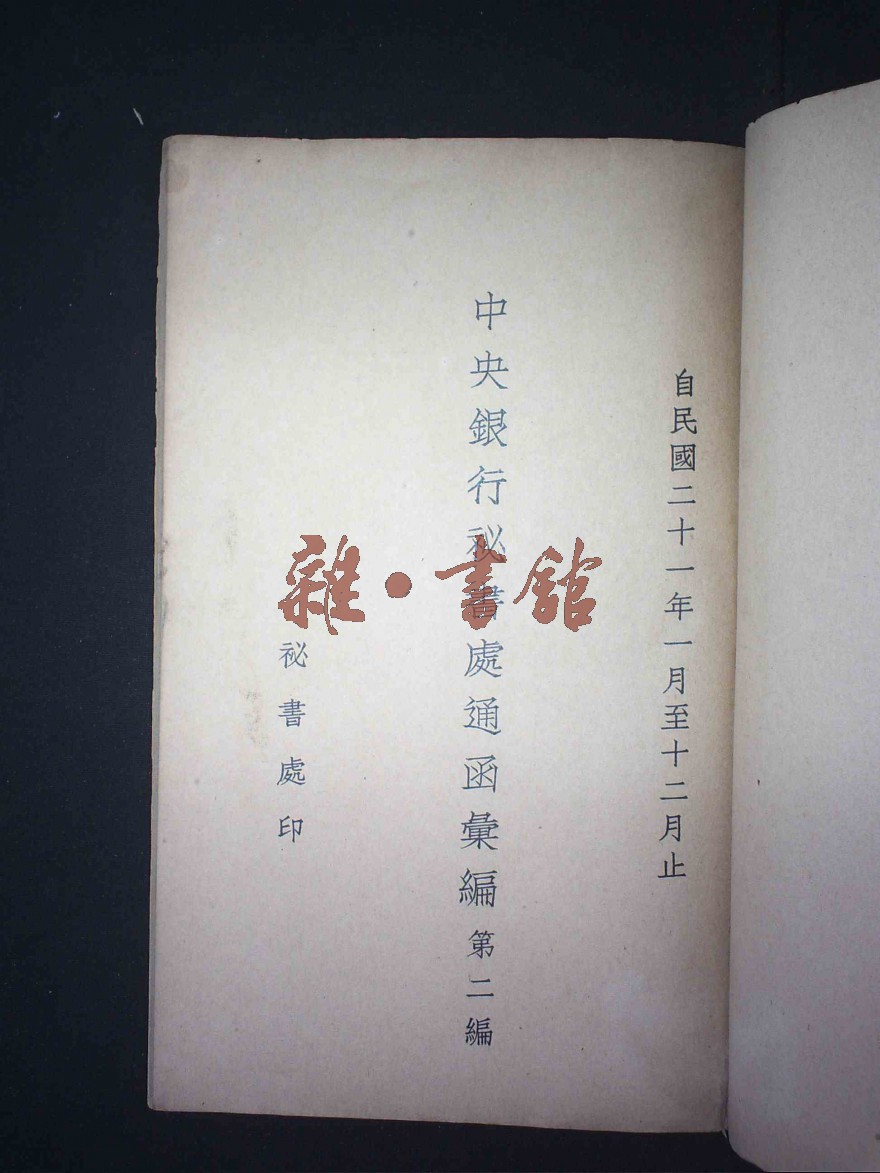 自民國二十一年一月至十二月止
中央銀行祕書處通函彙編 第二編
祕書處印
雜·書館